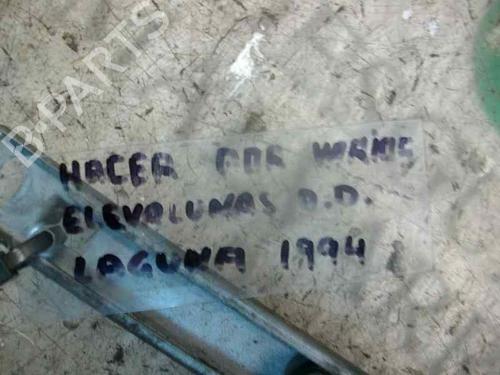 B-PARTS
HACER POR WHIOS
ELEVALUNAS D.D.
LAGUNA 1994